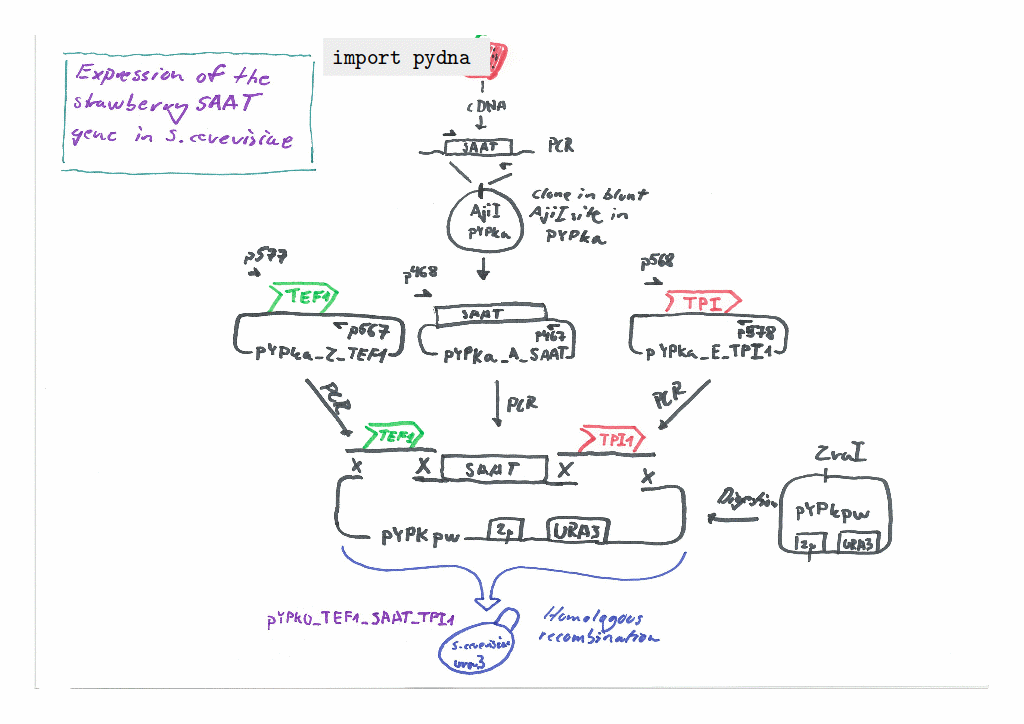 import pydna
Expression of the
strawberry SAAT
gene in S.cerevisiae
cDNA
SAAT
PCR
AjiI
pYPka
Clone in blunt
AjiI site in
pYPka
p577
TEF1
p667
pYPka_Z_TEF1
p468
SAAT
p467
pYPKa_A_SAAT
p568
TPI
p578
pYPka_E_TPI1
PCR
PCR
PCR
TEF1
TPI1
X
X
SAAT
X
X
pYPKpw
2µ
URA3
Digestion
ZraI
pYPkpw
2µ
URA3
pYPK0_TEF1_SAAT_TPI1
Homologous
recombination
S.cerevisiae
ura3